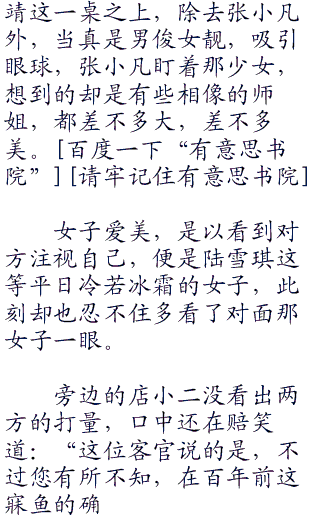 靖这一桌之上，除去张小凡
外，当真是男俊女靓，吸引
眼球，张小凡盯着那少女，
想到的却是有些相像的师
姐，都差不多大，差不多
美。[百度一下“有意思书
院”][请牢记住有意思书院]
女子爱美，是以看到对
方注视自己，便是陆雪琪这
等平日冷若冰霜的女子，此
刻却也忍不住多看了对面那
女子一眼。
旁边的店小二没看出两
方的打量，口中还在赔笑
道：“这位客官说的是，不
过您有所不知，在百年前这
寐鱼的确